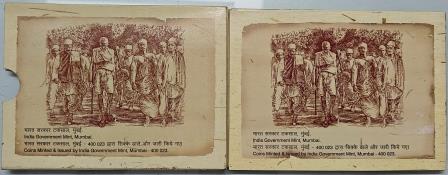 भारत सरकार टकसाल, मुंबई.
India Government Mint, Mumbai.
भारत सरकार टकसाल, मुंबई - 400 023 द्वारा सिक्के ढाले और जारी किये गए।
Coins Minted & Issued by India Government Mint, Mumbai - 400 023.
भारत सरकार टकसाल, मुंबई.
India Government Mint, Mumbai.
भारत सरकार टकसाल, मुंबई - 400 023 द्वारा सिक्के ढाले और जारी किये गए।
Coins Minted & Issued by India Government Mint, Mumbai - 400 023.